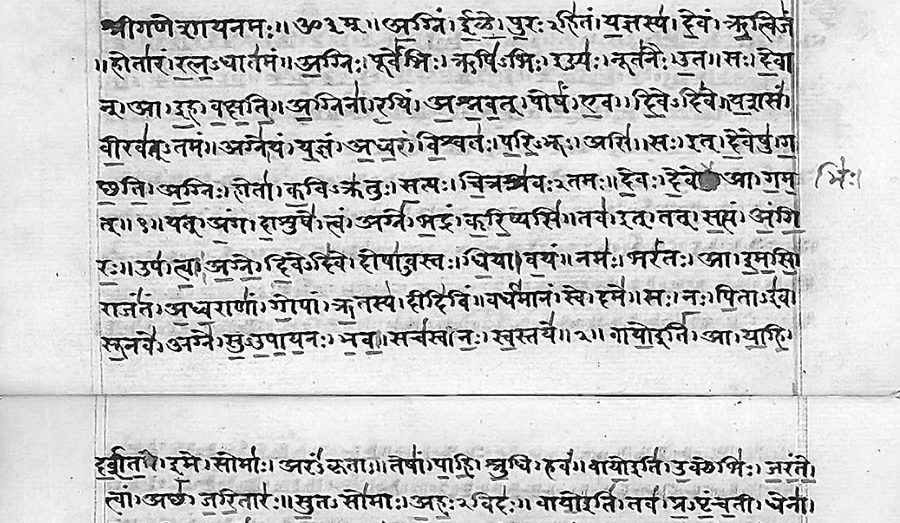 श्रीगणेशायनमः॥ॐ३म्॥अग्निं।ईळे।पुरःऽहितं।यज्ञस्य।देवं।ऋत्विजं
॥होतारं।रत्नऽधातमं॥अग्निः।पूर्वेभिः।ऋषिऽभिः।ईड्यः।नूतनैः।उत॥सः।देवा
न्।आ।इह।वक्षति॥अग्निना।रयिं।अश्नवत्।पोषं।एव।दिवेऽदिवे॥यशसं।
वीरवत्ऽतमं॥अग्ने।यं।यज्ञं।अध्वरं।विश्वतः।परिऽभूः।असि॥सः।इत्।देवेषु।ग
च्छति।अग्निः।होता।कविऽक्रतुः।सत्यः।चित्रश्रवःऽतमः॥देवः।देवे आ।गम
भिः।
त्॥१॥यत्।अंग।दाशुषे।त्वं।अग्ने।भद्रं।करिष्यसि॥तव।इत्।तत्।सत्यं।अंगि
रः॥उप।त्वा।अग्ने।दिवेऽदिवे।दोषाऽवस्तः।धिया।वयं॥नमः।भरंतः।आ।इमसि।
राजंतं।अध्वराणां।गोपां।ऋतस्य।दीदिविं॥वर्धमानं।स्वे।दमे॥सः।नः।पिताऽइव।
सूनवे।अग्ने।सुऽउपायनः।भव॥सचस्व।नः।स्वस्तये॥२॥वायोइति।आ।याहि।
दर्शत।इमे।सोमाः।अरंऽकृताः॥तेषां।पाहि।श्रुधि।हवं॥वायोइति।उक्थेभिः।जरंते।
त्वां।अच्छ।जरितारः॥सुतऽसोमाः।अहःऽविदः॥वायोइति।तव।प्रऽपृंचती।धेना।